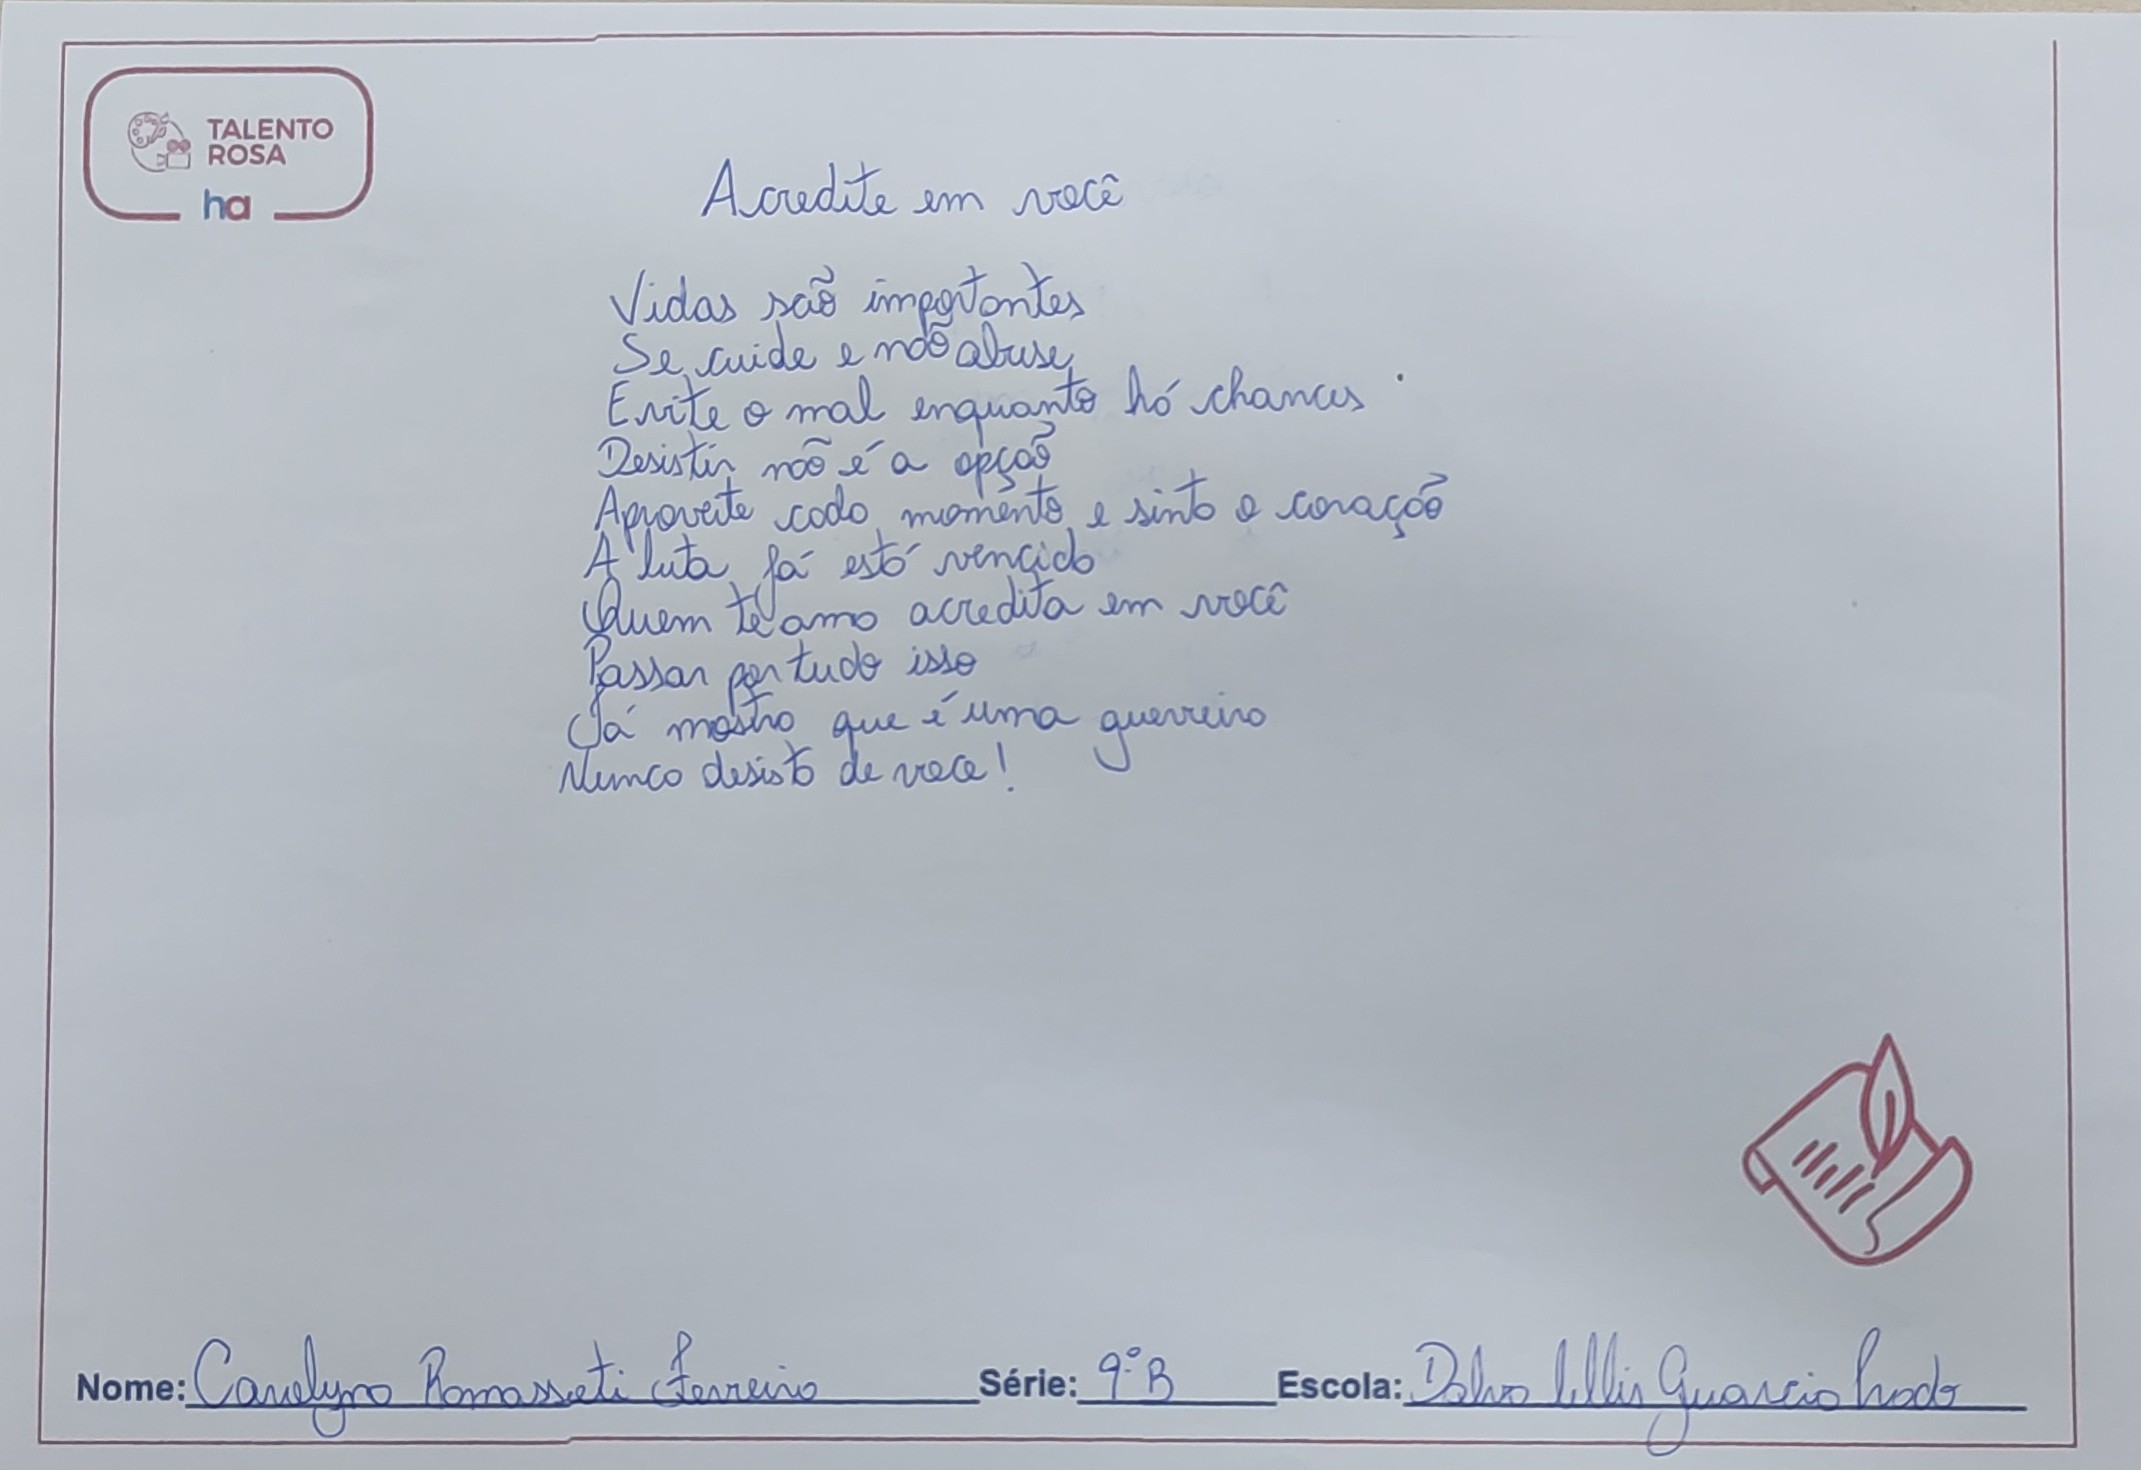 TALENTO
ROSA
ha
Acredite em você
Vidas são importantes
Se cuide e não abuse
Evite o mal enquanto há chances
Desistir não é a opção
Aproveite cada momento e sinta o coração
A luta já está vencida
Quem te ama acredita em você
Passar por tudo isso
Já mostra que é uma guerreira
Nunca desista de voce!
Nome: Carolyna Romasseti Ferreira Série: 9º B Escola: Dalva Lellis Guarcia Prado